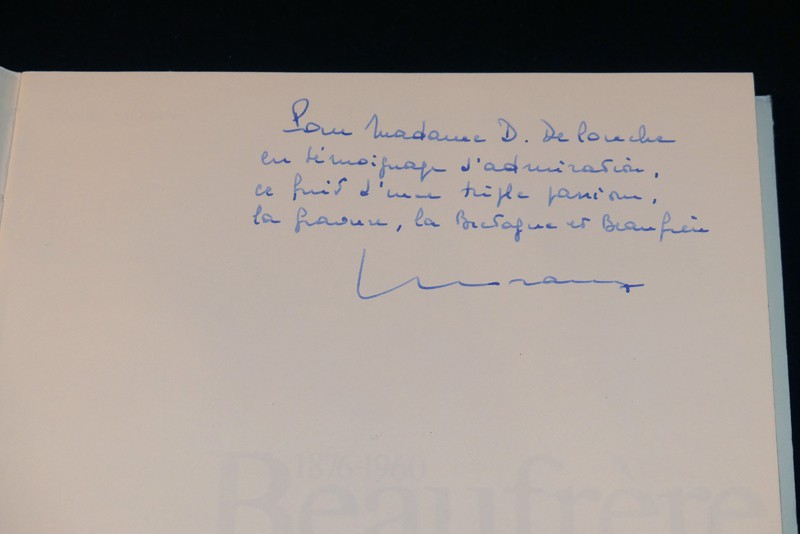 Pour Madame D. Delouche
en témoignage d'admiration,
ce fruit d'une triple passion,
la gravure, la Bretagne et Beaufrère
1876-1960
Beaufrère